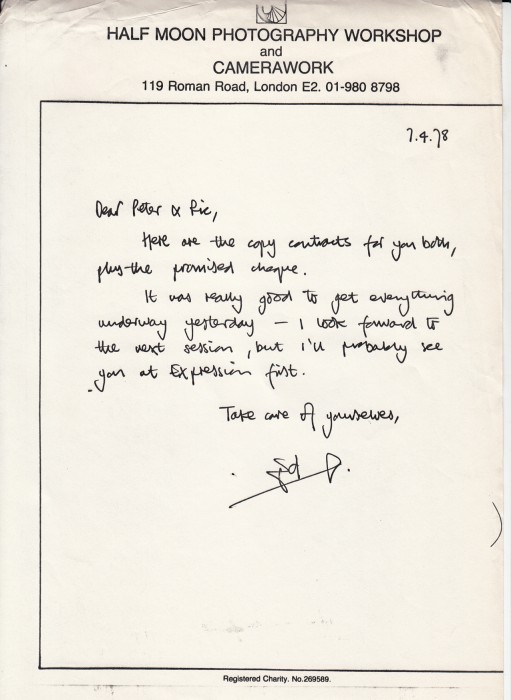 HALF MOON PHOTOGRAPHY WORKSHOP
and
CAMERAWORK
119 Roman Road, London E2. 01-980 8798
7.4.78
Dear Peter & Ric,
Here are the copy contracts for you both,
plus the promised cheque.
It was really good to get everything
underway yesterday – I look forward to
the next session, but I'll probably see
you at Expression first.
Take care of yourselves,
Ed
Registered Charity. No.269589.